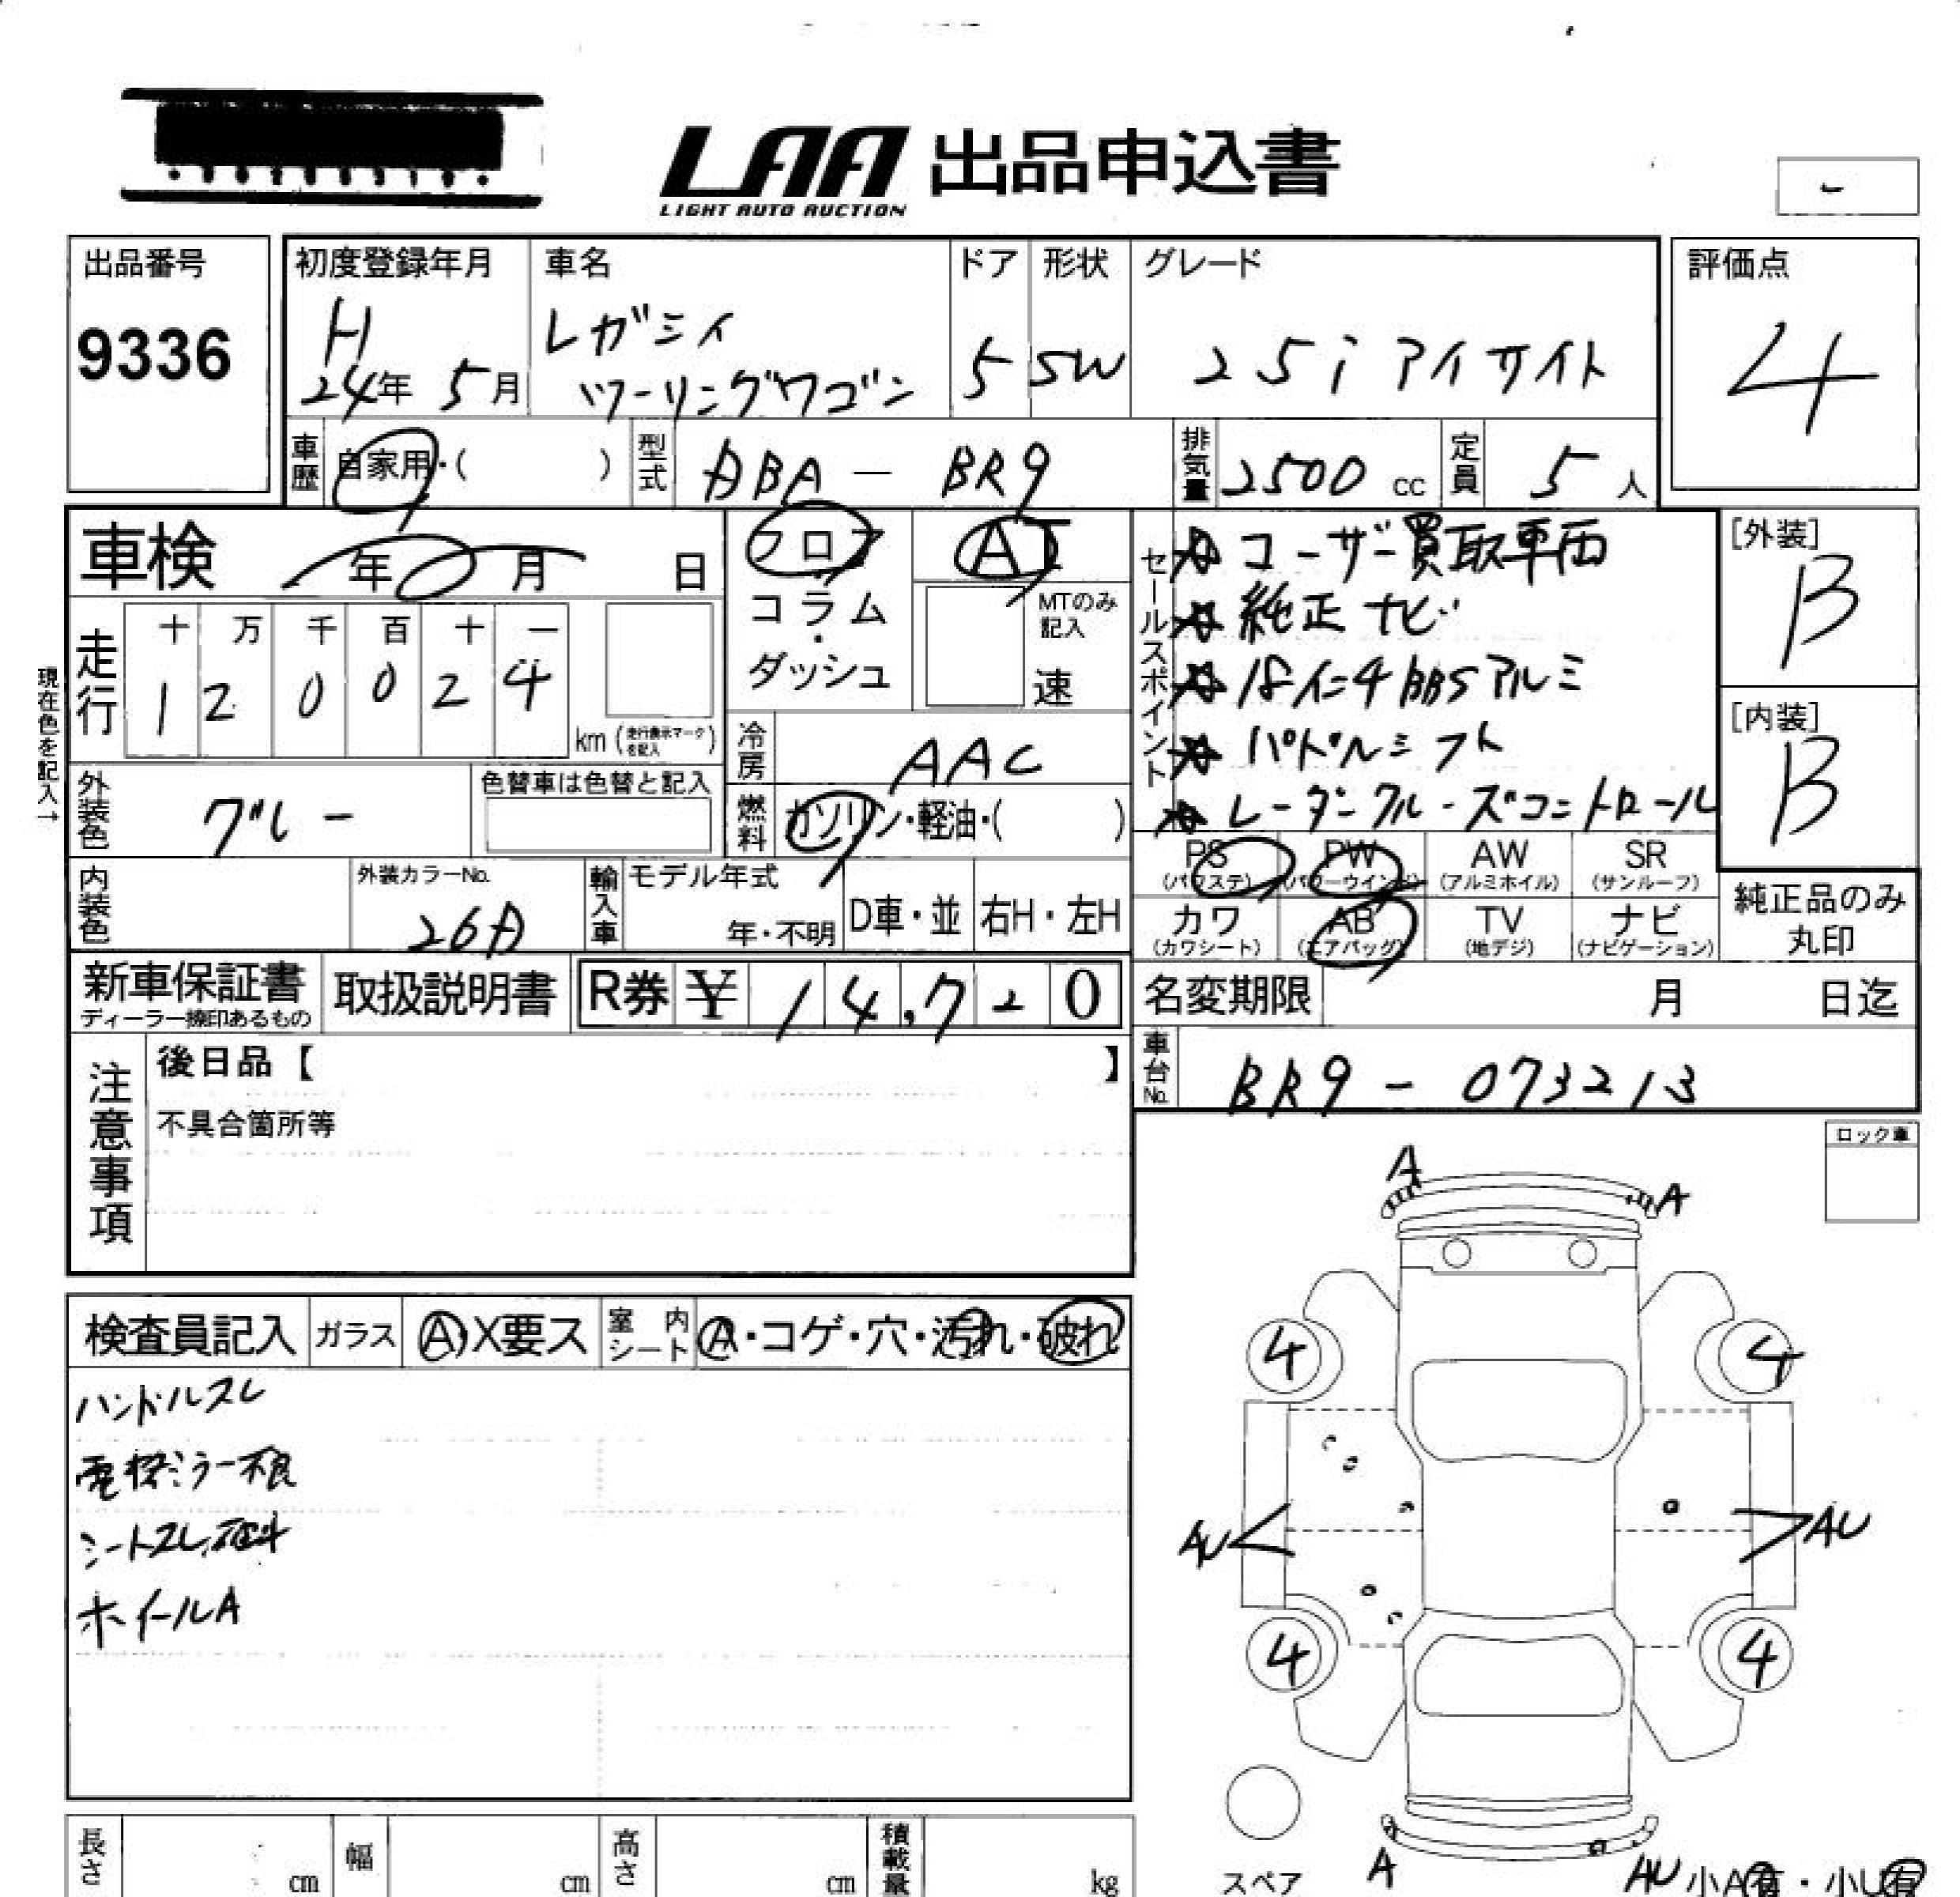 LAA 出品申込書
LIGHT AUTO AUCTION
出品番号
9336
初度登録年月
H
24年 5月
車名
レガシィ
ツーリングワゴン
ドア
5
形状
SW
グレード
25i アイサイト
評価点
4
車歴
自家用・( )
型式
DBA - BR9
排気量
2500 cc
定員
5 人
車検
年 月 日
フロア
コラム
・
ダッシュ
AT
MTのみ
記入
速
セールスポイント
☆ユーザー買取車両
☆純正ナビ
☆18インチBBSアルミ
☆パドルシフト
☆レーダークルーズコントロール
[外装]
B
[内装]
B
現在色を記入→
走行
十 万 千 百 十 一
1 2 0 0 2 4
km (走行表示マークを記入)
冷房
AAC
外装色
ブルー
色替車は色替と記入
燃料
ガソリン・軽油・( )
PS
(パワステ)
PW
(パワーウインド)
AW
(アルミホイル)
SR
(サンルーフ)
カワ
(カワシート)
AB
(エアバッグ)
TV
(地デジ)
ナビ
(ナビゲーション)
純正品のみ
丸印
内装色
外装カラーNo.
26A
輸入車
モデル年式
年・不明
D車・並
右H・左H
新車保証書
ディーラー捺印あるもの
取扱説明書
R券 ¥ 14,720
名変期限 月 日迄
車台No.
BR9 - 073213
注意事項
後日品【 】
不具合箇所等
ロック車
A
A
検査員記入
ガラス
A・X要ス
室内シート
A・コゲ・穴・汚れ・破れ
ハンドルスレ
電格ミラー不良
シートスレ,
ホイールA
4
4
AU
AU
4
4
A
AU
スペア
小A有・小U有
長さ cm
幅 cm
高さ cm
積載量 kg